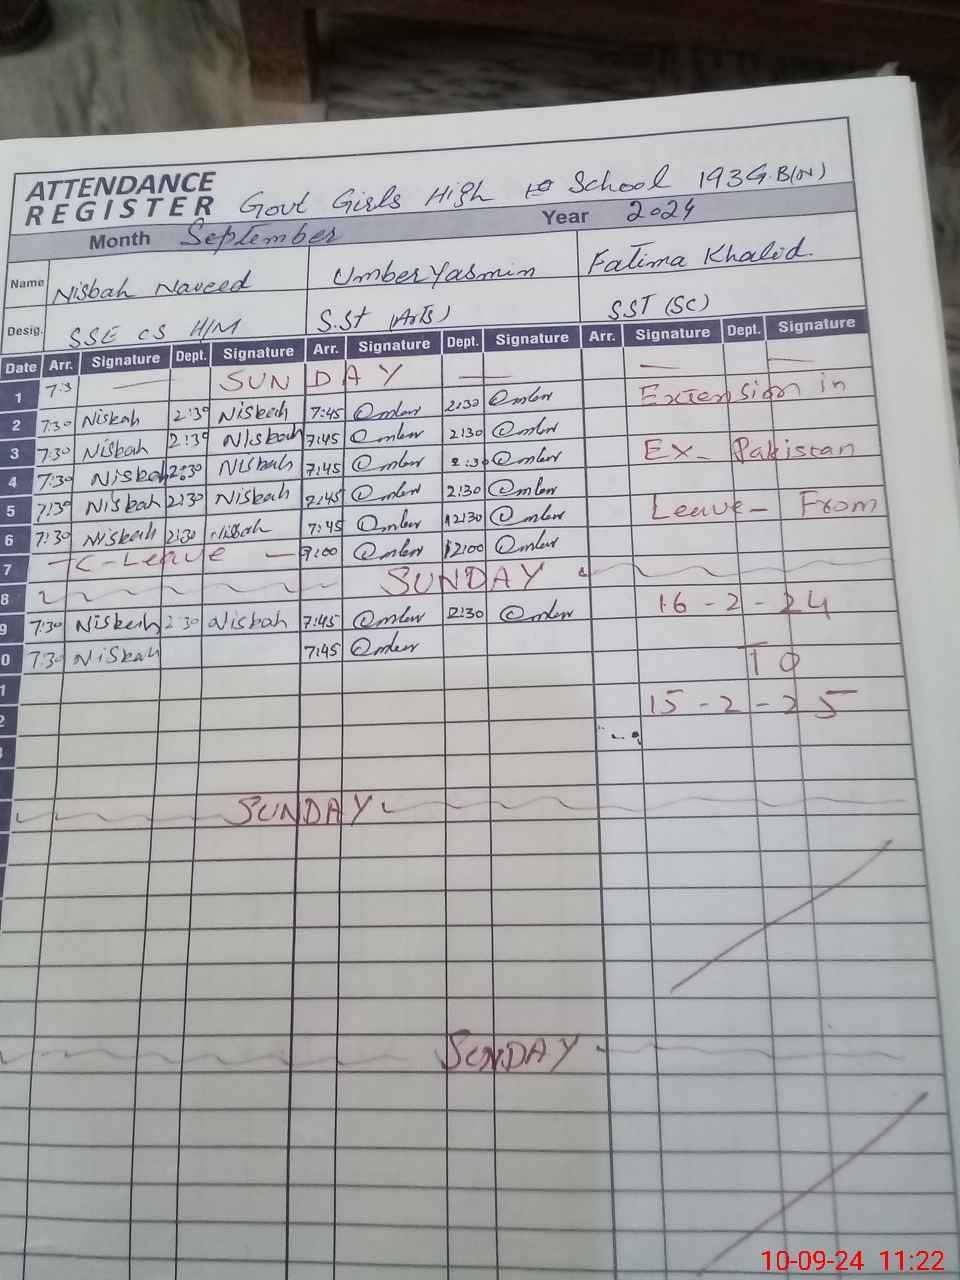 ATTENDANCE
REGISTER Govt Girls High School 193 G.B(N)
Month September Year 2024
Name Nisbah Naveed Umber Yasmin Fatima Khalid.
Desig. SSE CS H/M S.St (Arts) S.ST (SC)
Date Arr. Signature Dept. Signature Arr. Signature Dept. Signature Arr. Signature Dept. Signature
1 7:3 — SUNDAY — — —
2 7:30 Nisbah 2:30 Nisbah 7:45 Umber 2:30 Umber Extension in
3 7:30 Nisbah 2:30 Nisbah 7:45 Umber 2:30 Umber
4 7:30 Nisbah 2:30 Nisbah 7:45 Umber 2:30 Umber Ex- Pakistan
5 7:30 Nisbah 2:30 Nisbah 7:45 Umber 2:30 Umber
6 7:30 Nisbah 2:30 Nisbah 7:45 Umber 12:30 Umber Leave- From
7 C-Leave — 9:00 Umber 12:00 Umber
8 SUNDAY
9 7:30 Nisbah 2:30 Nisbah 7:45 Umber 2:30 Umber 16-2-24
0 7:30 Nisbah 7:45 Umber TO
1 15-2-25
2
SUNDAY
SUNDAY
10-09-24 11:22